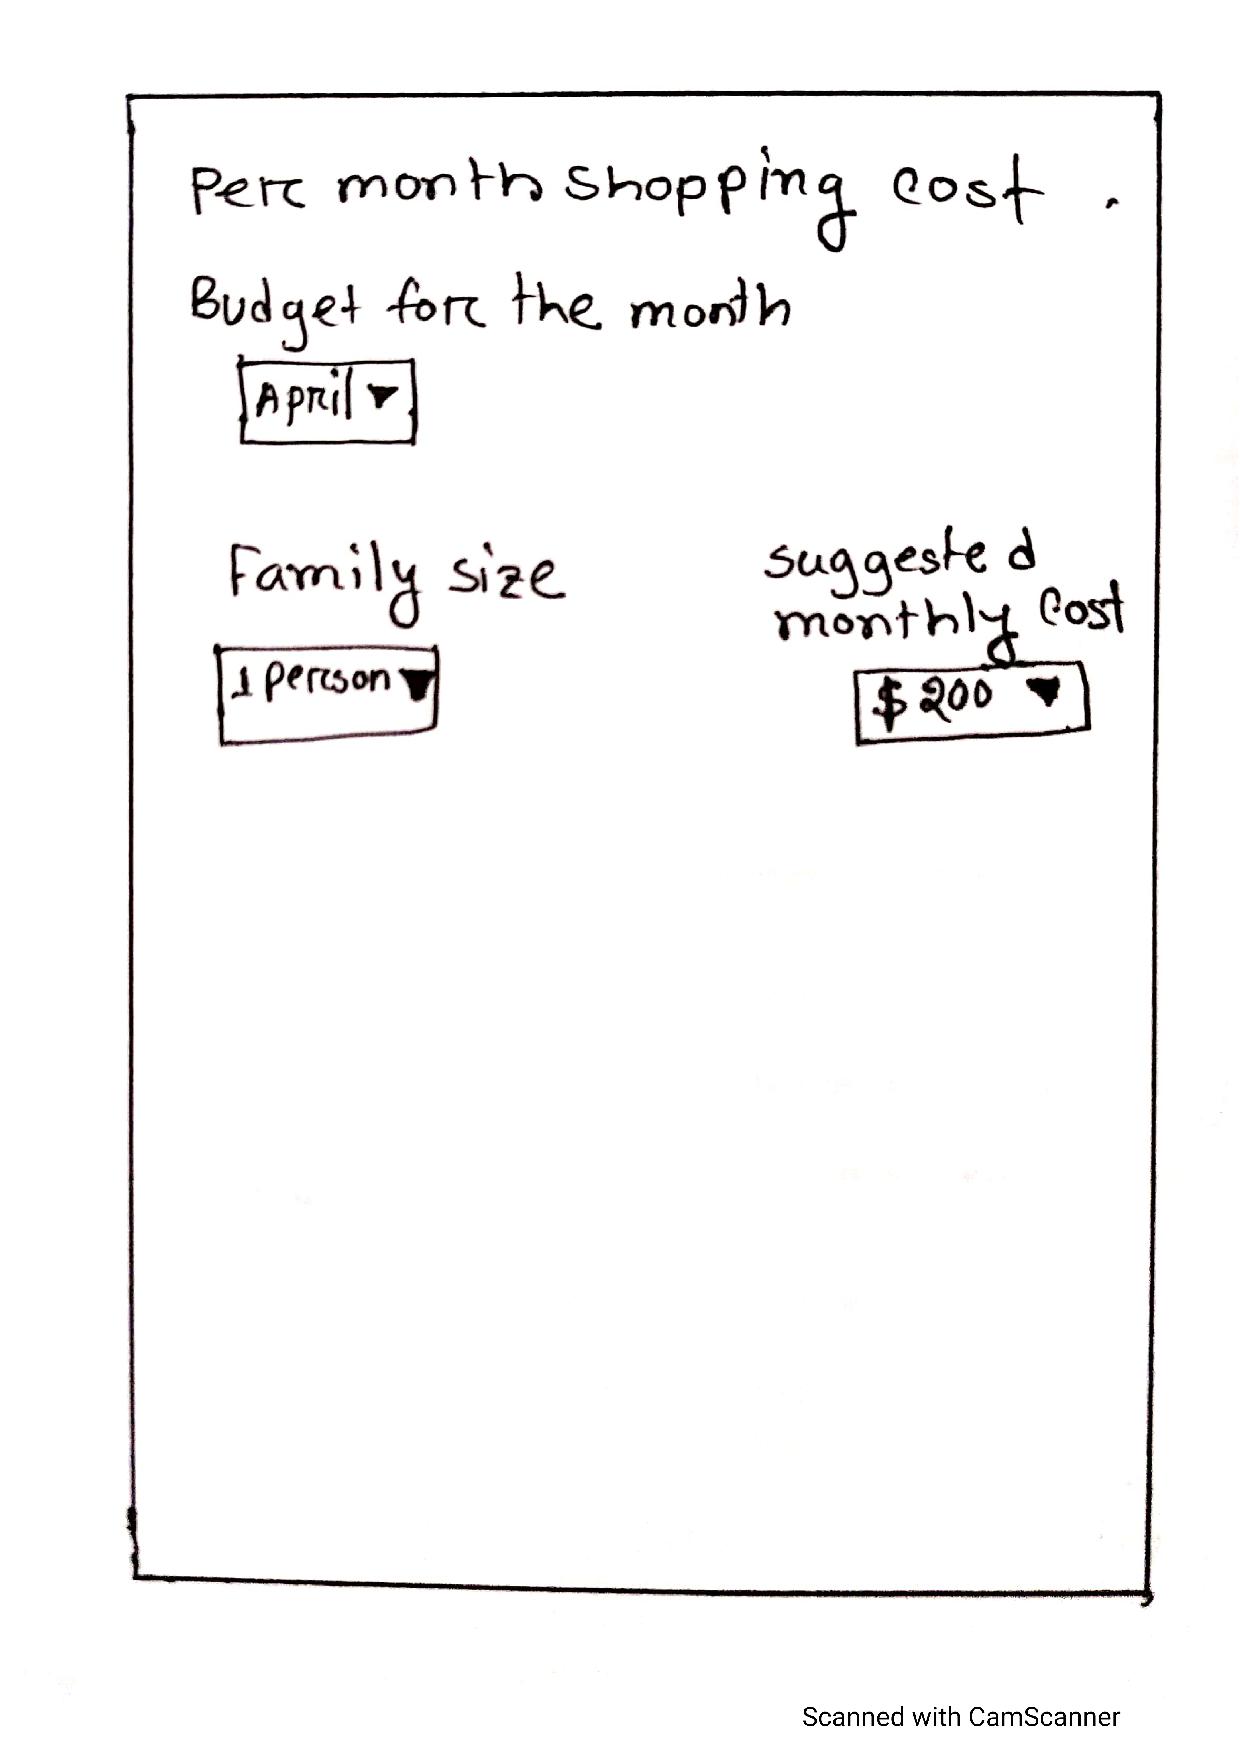 Per month shopping cost .
Budget for the month
April
Family size
suggested
monthly cost
1 person
$ 200
Scanned with CamScanner